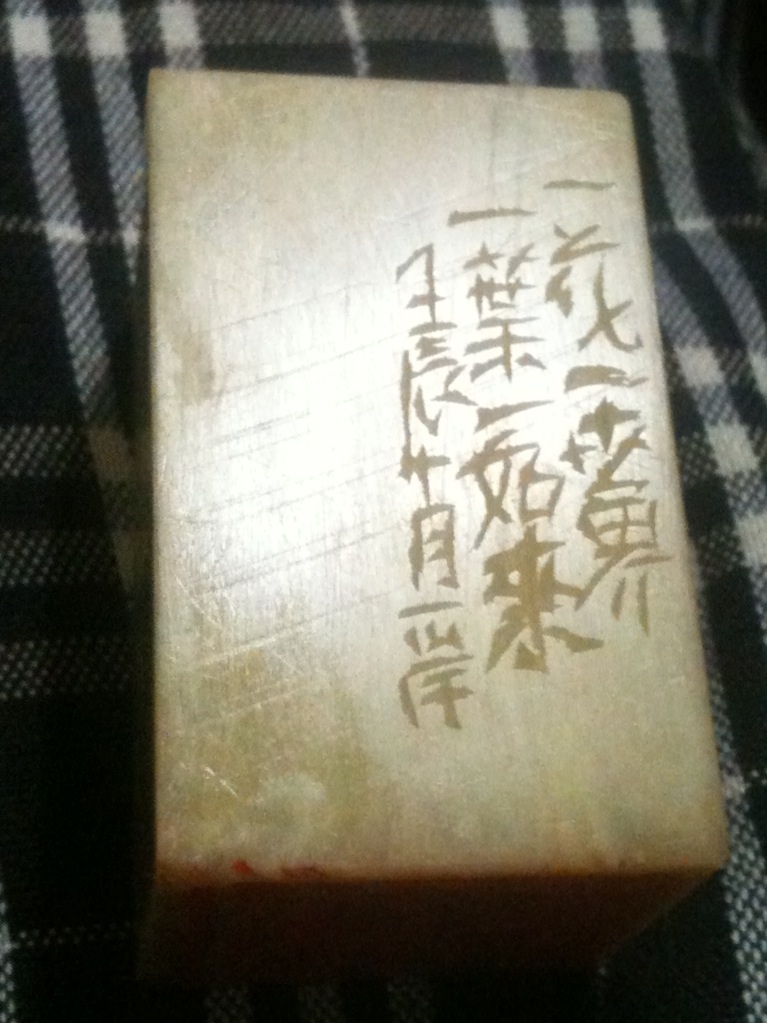 一花一世界
一葉一如來
壬辰十月一岸